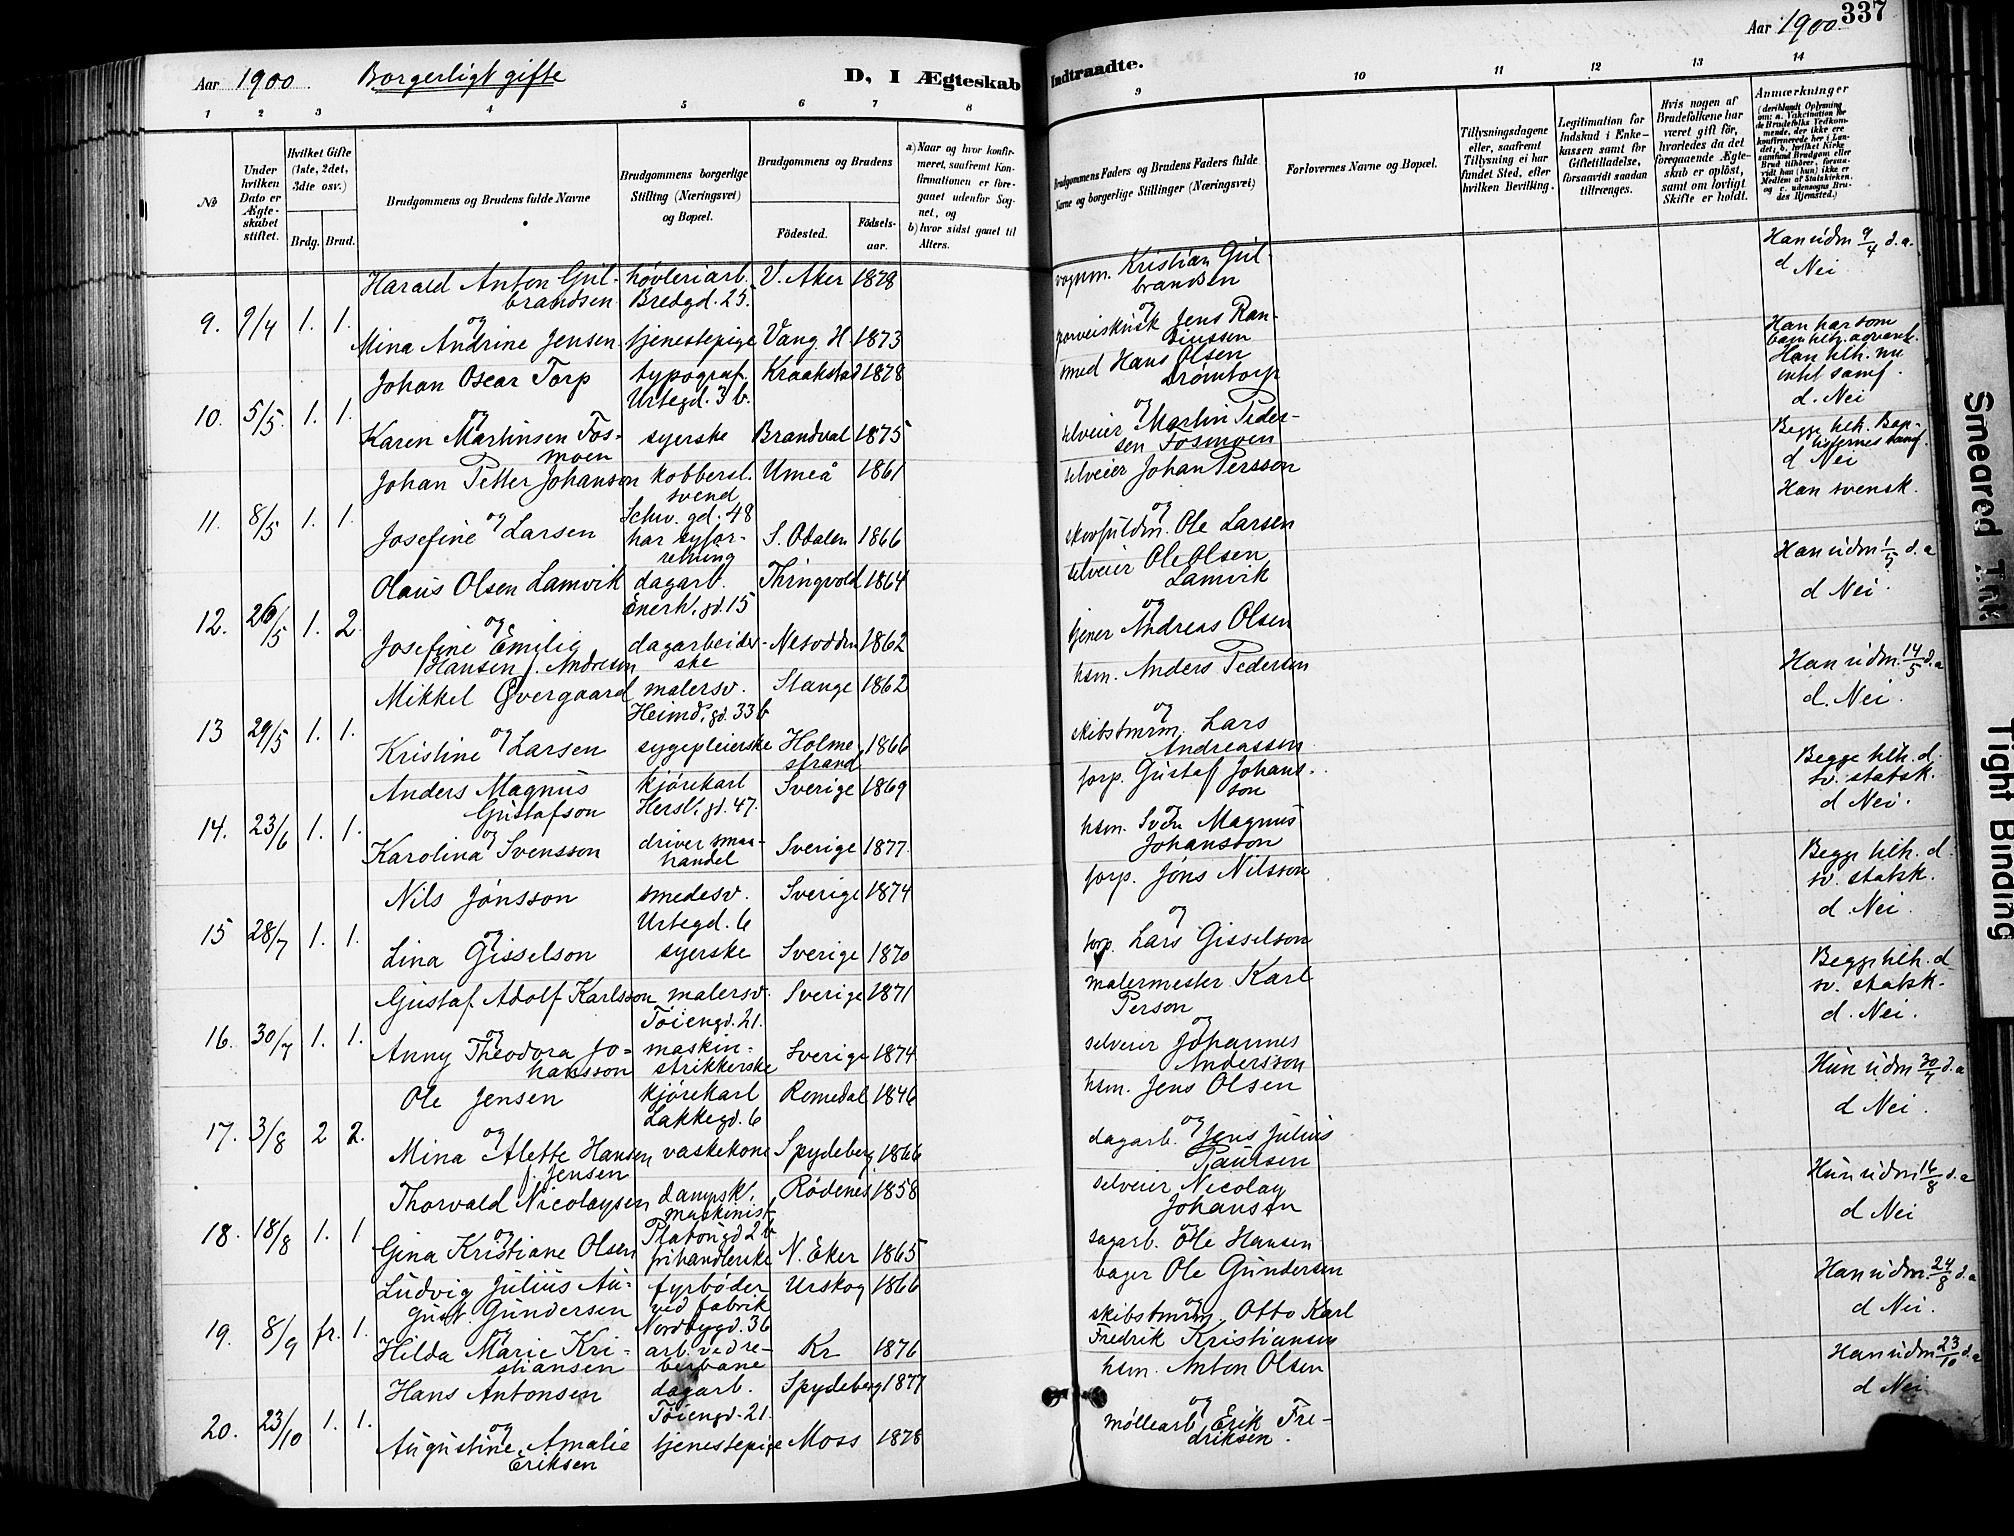 337
Aar 1900. Borgerligt gifte D, I Ægteskab Indtraadte. Aar 1900
1 2 3 4 5 6 7 8 9 10 11 12 13 14
No
Under hvilken Dato er Ægteskabet stiftet.
Hvilket Gifte (1ste, 2det, 3die osv.)
Brdg. Brud.
Brudgommens og Brudens fulde Navne
Brudgommens borgerlige Stilling (Næringsvei) og Bopæl.
Brudgommens og Brudens
Fødested.
Fødsels-aar.
a) Naar og hvor konfirmeret, saafremt Konfirmationen er foregaaet udenfor Sognet, og
b) hvor sidst gaaet til Alters.
Brudgommens Faders og Brudens Faders fulde Navne og borgerlige Stillinger (Næringsvei)
Forlovernes Navne og Bopæl.
Tillysningsdagene eller, saafremt Tillysning ei har fundet Sted, efter hvilken Bevilling.
Legitimation for Indskud i Enkekassen samt for Giftetilladelse, forsaavidt saadan tiltrænges.
Hvis nogen af Brudefolkene har været gift før, hvorledes da det foregaaende Ægteskab er opløst, samt om lovligt Skifte er holdt.
Anmærkninger
(deriblandt Oplysning om: a. Vakcination for de Brudefolks Vedkommende, der ikke ere konfirmerede her i Landet; b. hvilket Kirkesamfund Brudgom eller Brud tilhører, forsaavidt han (hun) ikke er Medlem af Statskirken, og c. udensogns Brudes Hjemsted.)
Harald Anton Gulbrandsen høvleriarb. Bredgd. 25. V. Aker 1878 Kristian Gulbrandsen Han udm 9/4 d.a. d Nei
9. 9/4 1. 1. og
Mina Andrine Jensen tjenestepige Vang H. 1873 Jens
Johan Oscar Torp typograf. Urtegd. 3 b. Kraakstad 1878 smed Hans Olsen Drømtorp Han har som Han tilh. nu intet samf. d. Nei
10. 5/5. 1. 1. og
Karen Martinsen Fosmoen syerske Brandval 1875 selveier Martin Pedersen Fosmoen Begge tilh. Baptisternes samf. d Nei
Johan Petter Johanson kobbersl. svend Schw. gd. 48 Umeå 1861 selveier Johan Persson Han svensk.
11. 8/5 1. 1. og
Josefine Larsen har syforretning S. Odalen 1866 skovfuldm. Ole Larsen
Olaus Olsen Lamvik dagarb. Enerh. gd. 15 Thingvold 1864 selveier Ole Olsen Lamvik Han udm 1/5 d.a d Nei.
12. 26/5 1. 2. og
Josefine Emilie Hansen f. Andresen dagarbeiderske Nesodden 1862 Andreas Olsen
Mikkel Øvergaard malersv. Heimd. gd. 33 b Stange 1862 hsm. Anders Pedersen Han udm. 14/5 d.a d. Nei.
13 29/5 1. 1. og
Kristine Larsen sygepleierske Holmestrand 1866 skibstmrm. Lars Andreassen
Anders Magnus Gustafson kjørekarl Hersl. gd. 47. Sverige 1869 torp. Gustaf Johansson Begge tilh. d. sv. statsk. d Nei.
14. 23/6 1. 1. og
Karolina Svensson driver smaahandel Sverige 1877. hsm. Sven Magnus Johansson
Nils Jönsson smedesv. Urtegd. 6 Sverige 1874 torp. Jöns Nilsson Begge tilh. d. sv. statsk. d. Nei.
15 28/7 1. 1. og
Lina Gisselson syerske Sverige 1870 torp. Lars Gisselson
Gustaf Adolf Karlsson malersv. Töiengd. 21. Sverige 1871 malermester Karl Person Begge tilh. d. sv. statsk. d. Nei.
16. 30/7 1. 1. og
Anny Theodora Johansson maskinstrikkerske Sverige 1874 selveier Johannes Andersson
Ole Jensen kjørekarl Lakkegd. 6 Romedal 1846 hsm. Jens Olsen Hun udm 30/7 d.a d Nei.
17. 3/8 2 2. og
Mina Alette Hansen f. Jensen vaskekone Spydeberg 1866 dagarb. Jens Julius Paulsen
Thorvald Nicolaysen dampsk. maskinist Platougd 2 b Rødenes 1858 selveier Nicolay Johansen Hun udm 16/8 d.a d Nei
18. 18/8 1. 1 og
Gina Kristiane Olsen frihandlerske N. Eker 1865 sagarb. Ole Hansen
Ludvig Julius August Gundersen fyrbøder ved fabrik Nordbygd. 36 Urskog 1866 bager Ole Gundersen Han udm. 24/8 d.a d Nei.
19. 8/9 fr. 1. og
Hilda Marie Kristiansen arb. ved reberbane Kr 1876 skibstmrm. Otto Karl Fredrik Kristiansen
Hans Antonsen dagarb. Töiengd. 21. Spydeberg 1877 hsm. Anton Olsen Han udm 23/10 d.a d Nei
20. 23/10 1. 1. og
Augustine Amalie Eriksen tjenestepige Moss 1878 møllearb. Erik Fredriksen.
Smeared Ink
Tight Binding